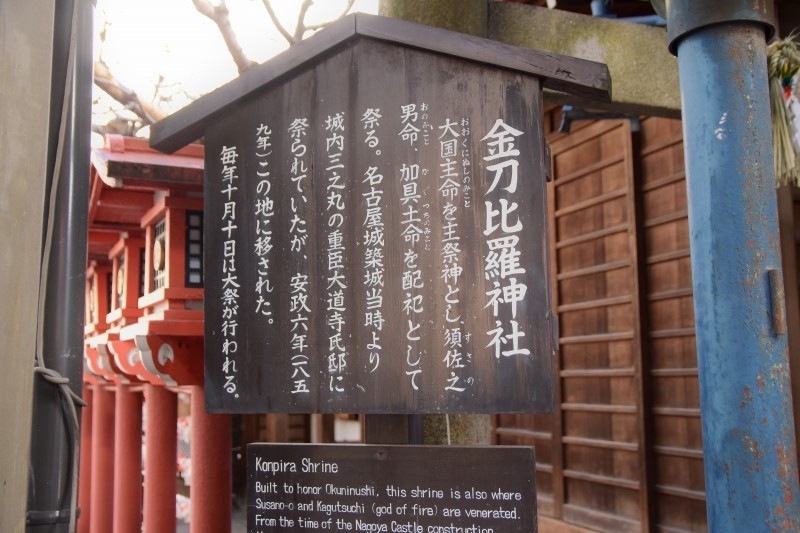 金刀比羅神社
おおくにぬしのみこと すさの
大国主命を主祭神とし須佐之
おのみこと かぐつちのみこと
男命、加具土命を配祀として
祭る。名古屋城築城当時より
城内三之丸の重臣大道寺氏邸に
祭られていたが、安政六年(一八五
九年)この地に移された。
毎年十月十日は大祭が行われる。
Konpira Shrine
Built to honor Okuninushi, this shrine is also where
Susano-o and Kagutsuchi (god of fire) are venerated.
From the time of the Nagoya Castle construction,